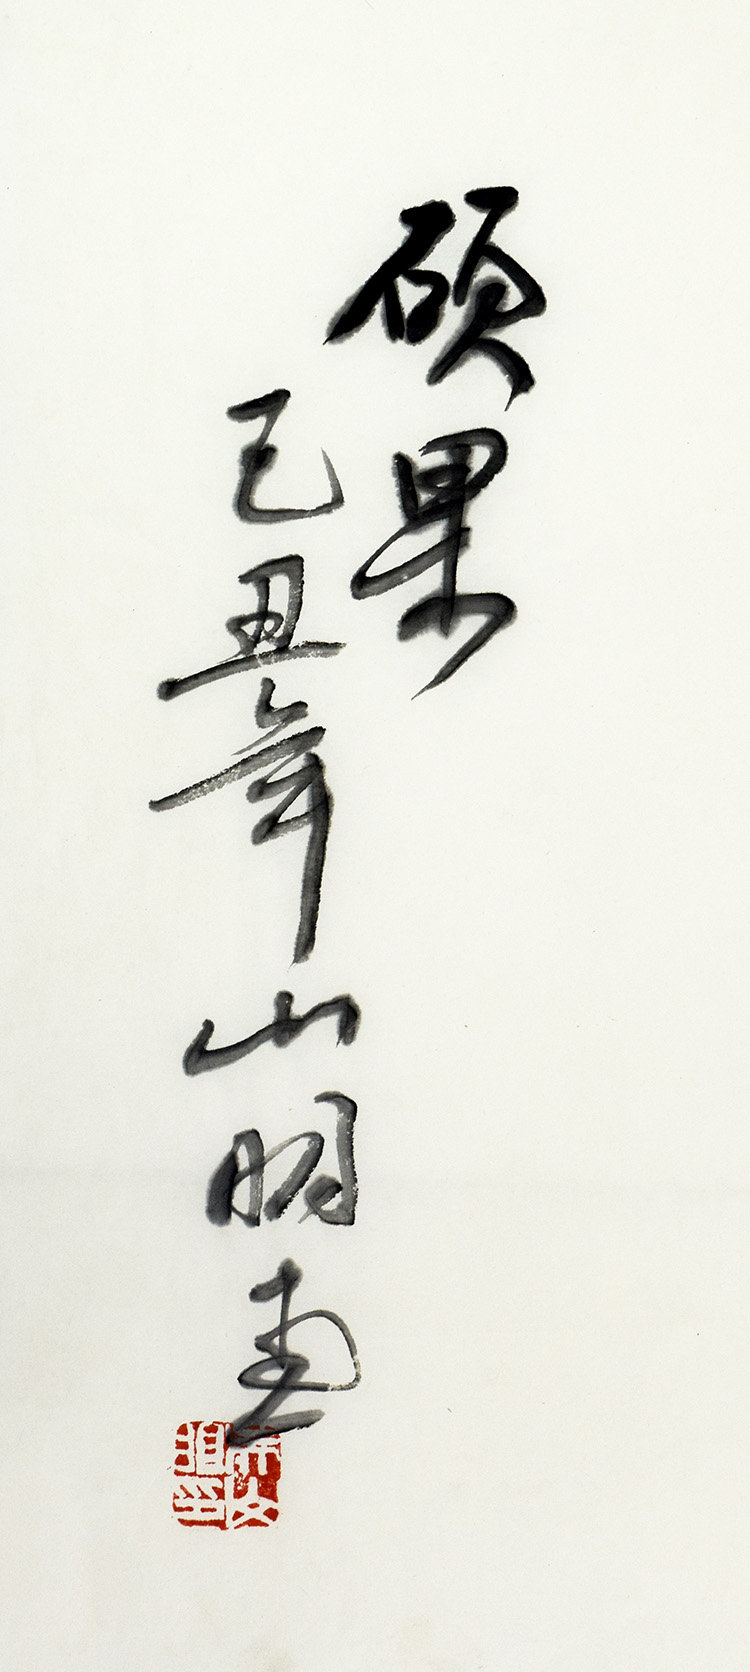 硕果
己丑年山明画